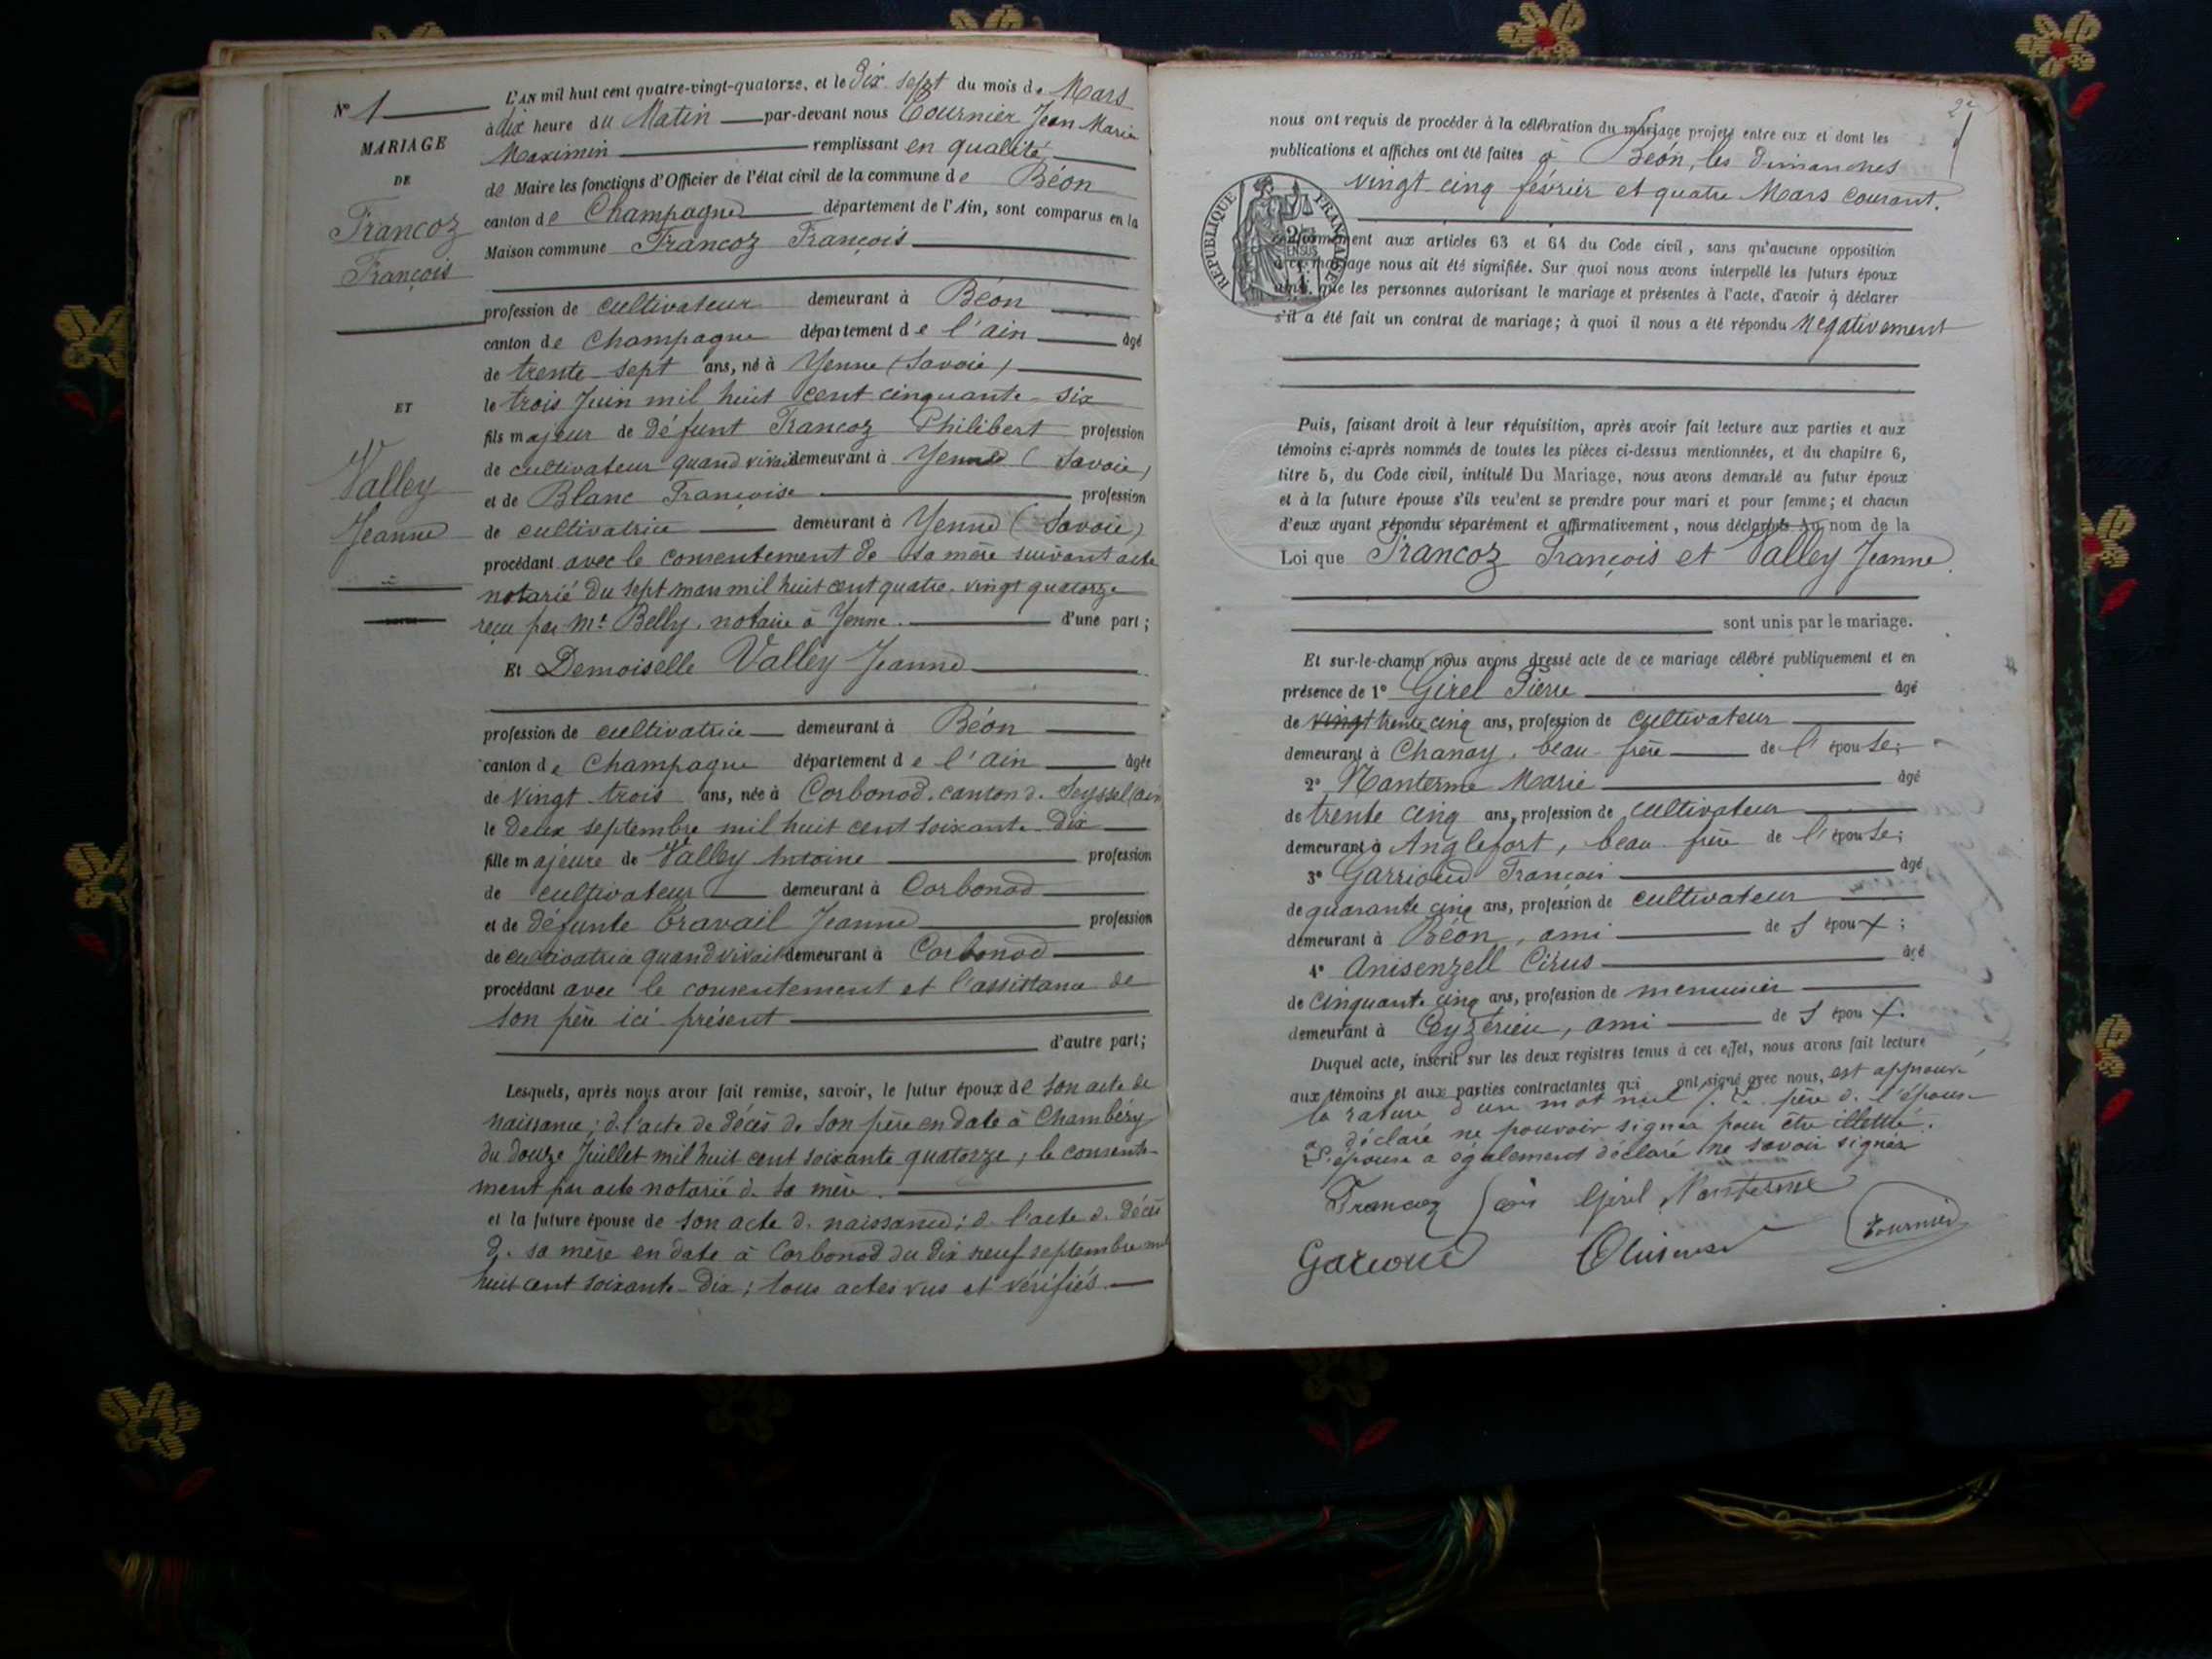 N° 1
MARIAGE
DE
Francoz
François
ET
Valley
Jeanne
L'AN mil huit cent quatre-vingt-quatorze, et le dix sept du mois de Mars
à dix heure du Matin par-devant nous Tournier Jean Marie
Maximin remplissant en qualité
de Maire les fonctions d'Officier de l'état civil de la commune de Béon
canton de Champagne département de l'Ain, sont comparus en la
Maison commune Francoz François
profession de cultivateur demeurant à Béon
canton de Champagne département de l'ain âgé
de trente-sept ans, né à Yenne (Savoie)
le trois Juin mil huit cent cinquante-six
fils majeur de défunt Francoz Philibert profession
de cultivateur quand vivait demeurant à Yenne (Savoie)
et de Blanc Françoise profession
de cultivatrice demeurant à Yenne (Savoie)
procédant avec le consentement de sa mère suivant acte
notarié du sept mars mil huit cent quatre-vingt quatorze
reçu par Me Belly, notaire à Yenne. d'une part;
Et Demoiselle Valley Jeanne
profession de cultivatrice demeurant à Béon
canton de Champagne département de l'ain âgée
de vingt trois ans, née à Corbonod, canton de Seyssel (ain
le deux septembre mil huit cent soixante-dix
fille majeure de Valley Antoine profession
de cultivateur demeurant à Corbonod
et de défunte Travail Jeanne profession
de cultivatrice quand vivait demeurant à Corbonod
procédant avec le consentement et l'assistance de
son père ici présent
d'autre part;
Lesquels, après nous avoir fait remise, savoir, le futur époux de son acte de
naissance; de l'acte de décès de son père en date à Chambéry
du douze Juillet mil huit cent soixante quatorze; le consente-
ment par acte notarié de sa mère.
et la future épouse de son acte de naissance; de l'acte de décès
de sa mère en date à Corbonod du dix neuf septembre mil
huit cent soixante-dix; tous actes vus et vérifiés.
2e
nous ont requis de procéder à la célébration du mariage projeté entre eux et dont les
publications et affiches ont été faites à Béon, les dimanches
vingt cinq février et quatre Mars courant.
RÉPUBLIQUE FRANÇAISE
conformément aux articles 63 et 64 du Code civil, sans qu'aucune opposition
à ce mariage nous ait été signifiée. Sur quoi nous avons interpellé les futurs époux
ainsi que les personnes autorisant le mariage et présentes à l'acte, d'avoir à déclarer
s'il a été fait un contrat de mariage; à quoi il nous a été répondu négativement
Puis, faisant droit à leur réquisition, après avoir fait lecture aux parties et aux
témoins ci-après nommés de toutes les pièces ci-dessus mentionnées, et du chapitre 6,
titre 5, du Code civil, intitulé Du Mariage, nous avons demandé au futur époux
et à la future épouse s'ils veulent se prendre pour mari et pour femme; et chacun
d'eux ayant répondu séparément et affirmativement, nous déclarons au nom de la
Loi que Francoz François et Valley Jeanne.
sont unis par le mariage.
Et sur-le-champ nous avons dressé acte de ce mariage célébré publiquement et en
présence de 1° Girel Pierre âgé
de vingt trente cinq ans, profession de cultivateur
demeurant à Chanay, beau-frère de l'épouse;
2° Nanterme Marie âgé
de trente cinq ans, profession de cultivateur
demeurant à Anglefort, beau-frère de l'épouse;
3° Garrioud François âgé
de quarante cinq ans, profession de cultivateur
demeurant à Béon, ami de l'époux;
4° Anisenzell Cirus âgé
de cinquante cinq ans, profession de menuisier
demeurant à Ceyzérieu, ami de l'époux.
Duquel acte, inscrit sur les deux registres tenus à cet effet, nous avons fait lecture
aux témoins et aux parties contractantes qui ont signé avec nous, est approuvé
la rature d'un mot nul. Le père de l'épouse
a déclaré ne pouvoir signer pour être illettré.
L'épouse a également déclaré ne savoir signer
Francoz fçois Girel Nanterme
Garioud Tournier